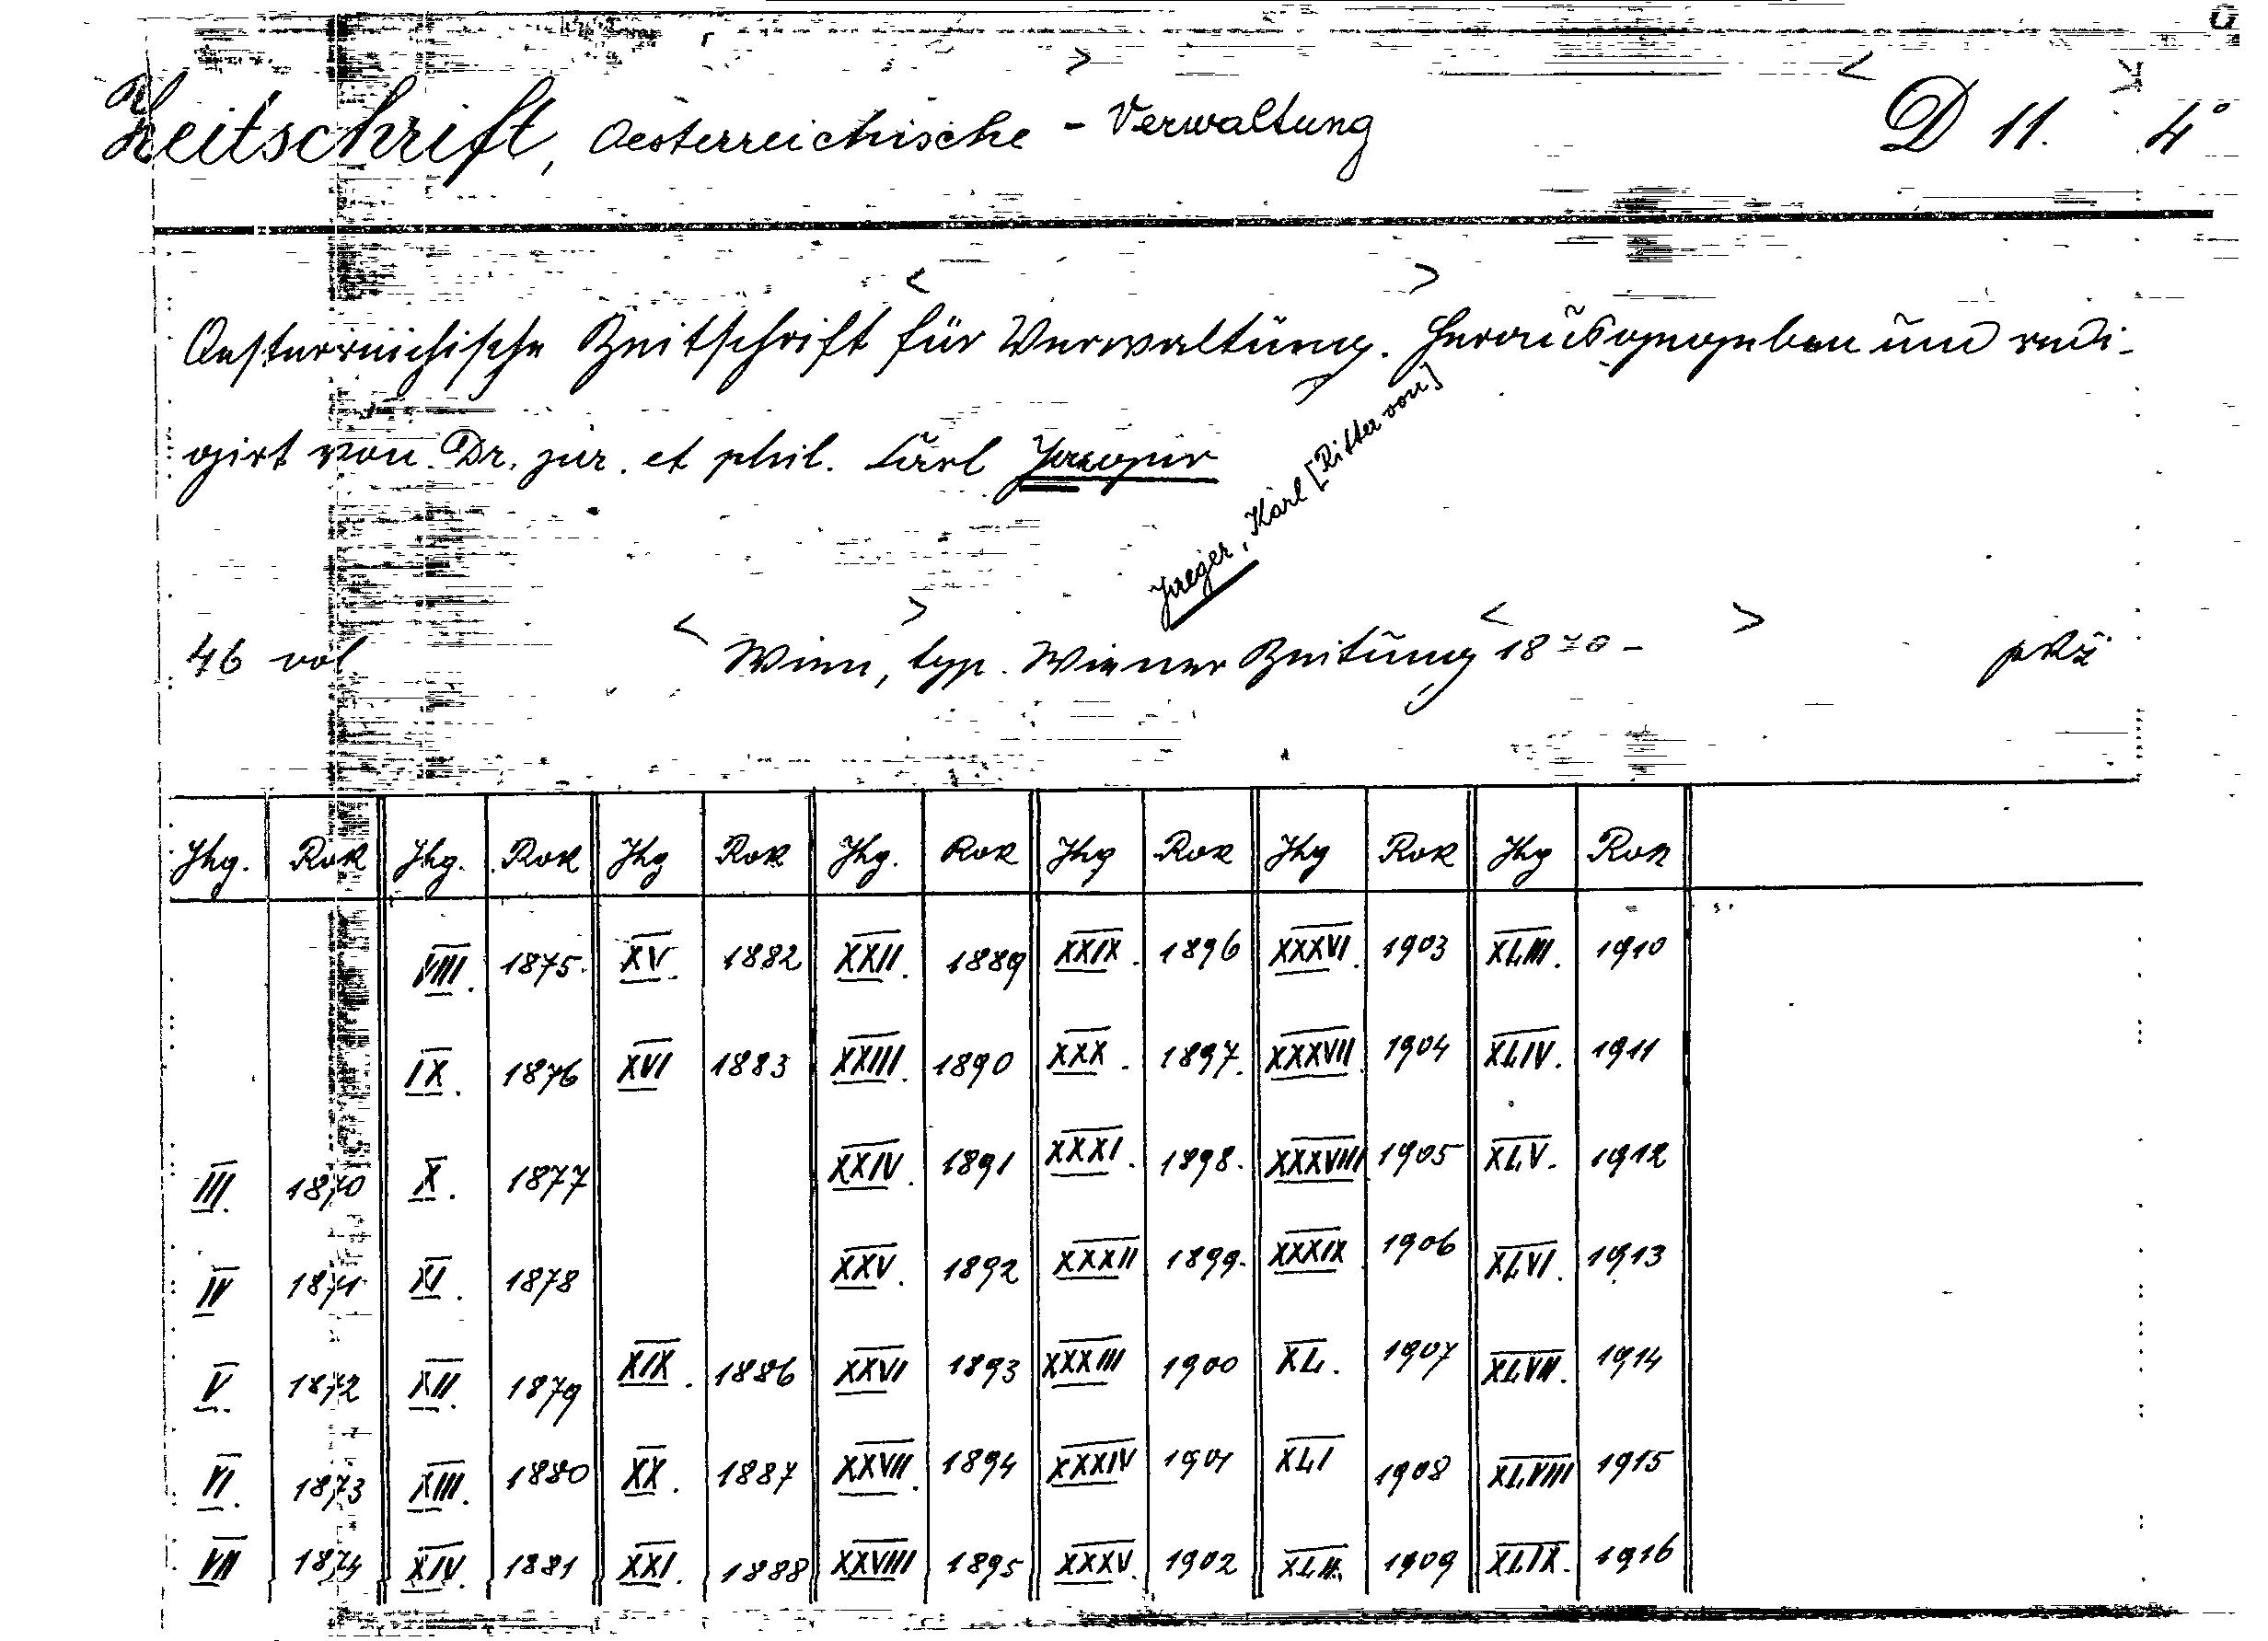 Zeitschrift, Oesterreichische - Verwaltung D 11. 4°
Oesterreichische Zeitschrift für Verwaltung. Herausgegeben und redi-
girt von Dr. jur. et phil. Carl Jaeger
Jaeger, Karl [Ritter von]
46 vol < Wien, typ. Wiener Zeitung 1870 -
Jhg. Rok Jhg. Rok Jhg Rok Jhg. Rok Jhg Rok Jhg Rok Jhg Rok
VIII. 1875. XV. 1882 XXII. 1889 XXIX. 1896 XXXVI. 1903 XLIII. 1910
IX. 1876 XVI 1883 XXIII. 1890 XXX. 1897. XXXVII. 1904 XLIV. 1911
III. 1870 X. 1877 XXIV. 1891 XXXI. 1898. XXXVIII 1905 XLV. 1912
IV 1871 XI. 1878 XXV. 1892 XXXII 1899. XXXIX. 1906 XLVI. 1913
V. 1872 XII. 1879 XIX. 1886 XXVI 1893 XXXIII 1900 XL. 1907 XLVII. 1914
VI. 1873 XIII. 1880 XX. 1887 XXVII. 1894 XXXIV 1901 XLI 1908 XLVIII 1915
VII 1874 XIV. 1881 XXI. 1888 XXVIII 1895 XXXV. 1902 XLII. 1909 XLIX. 1916